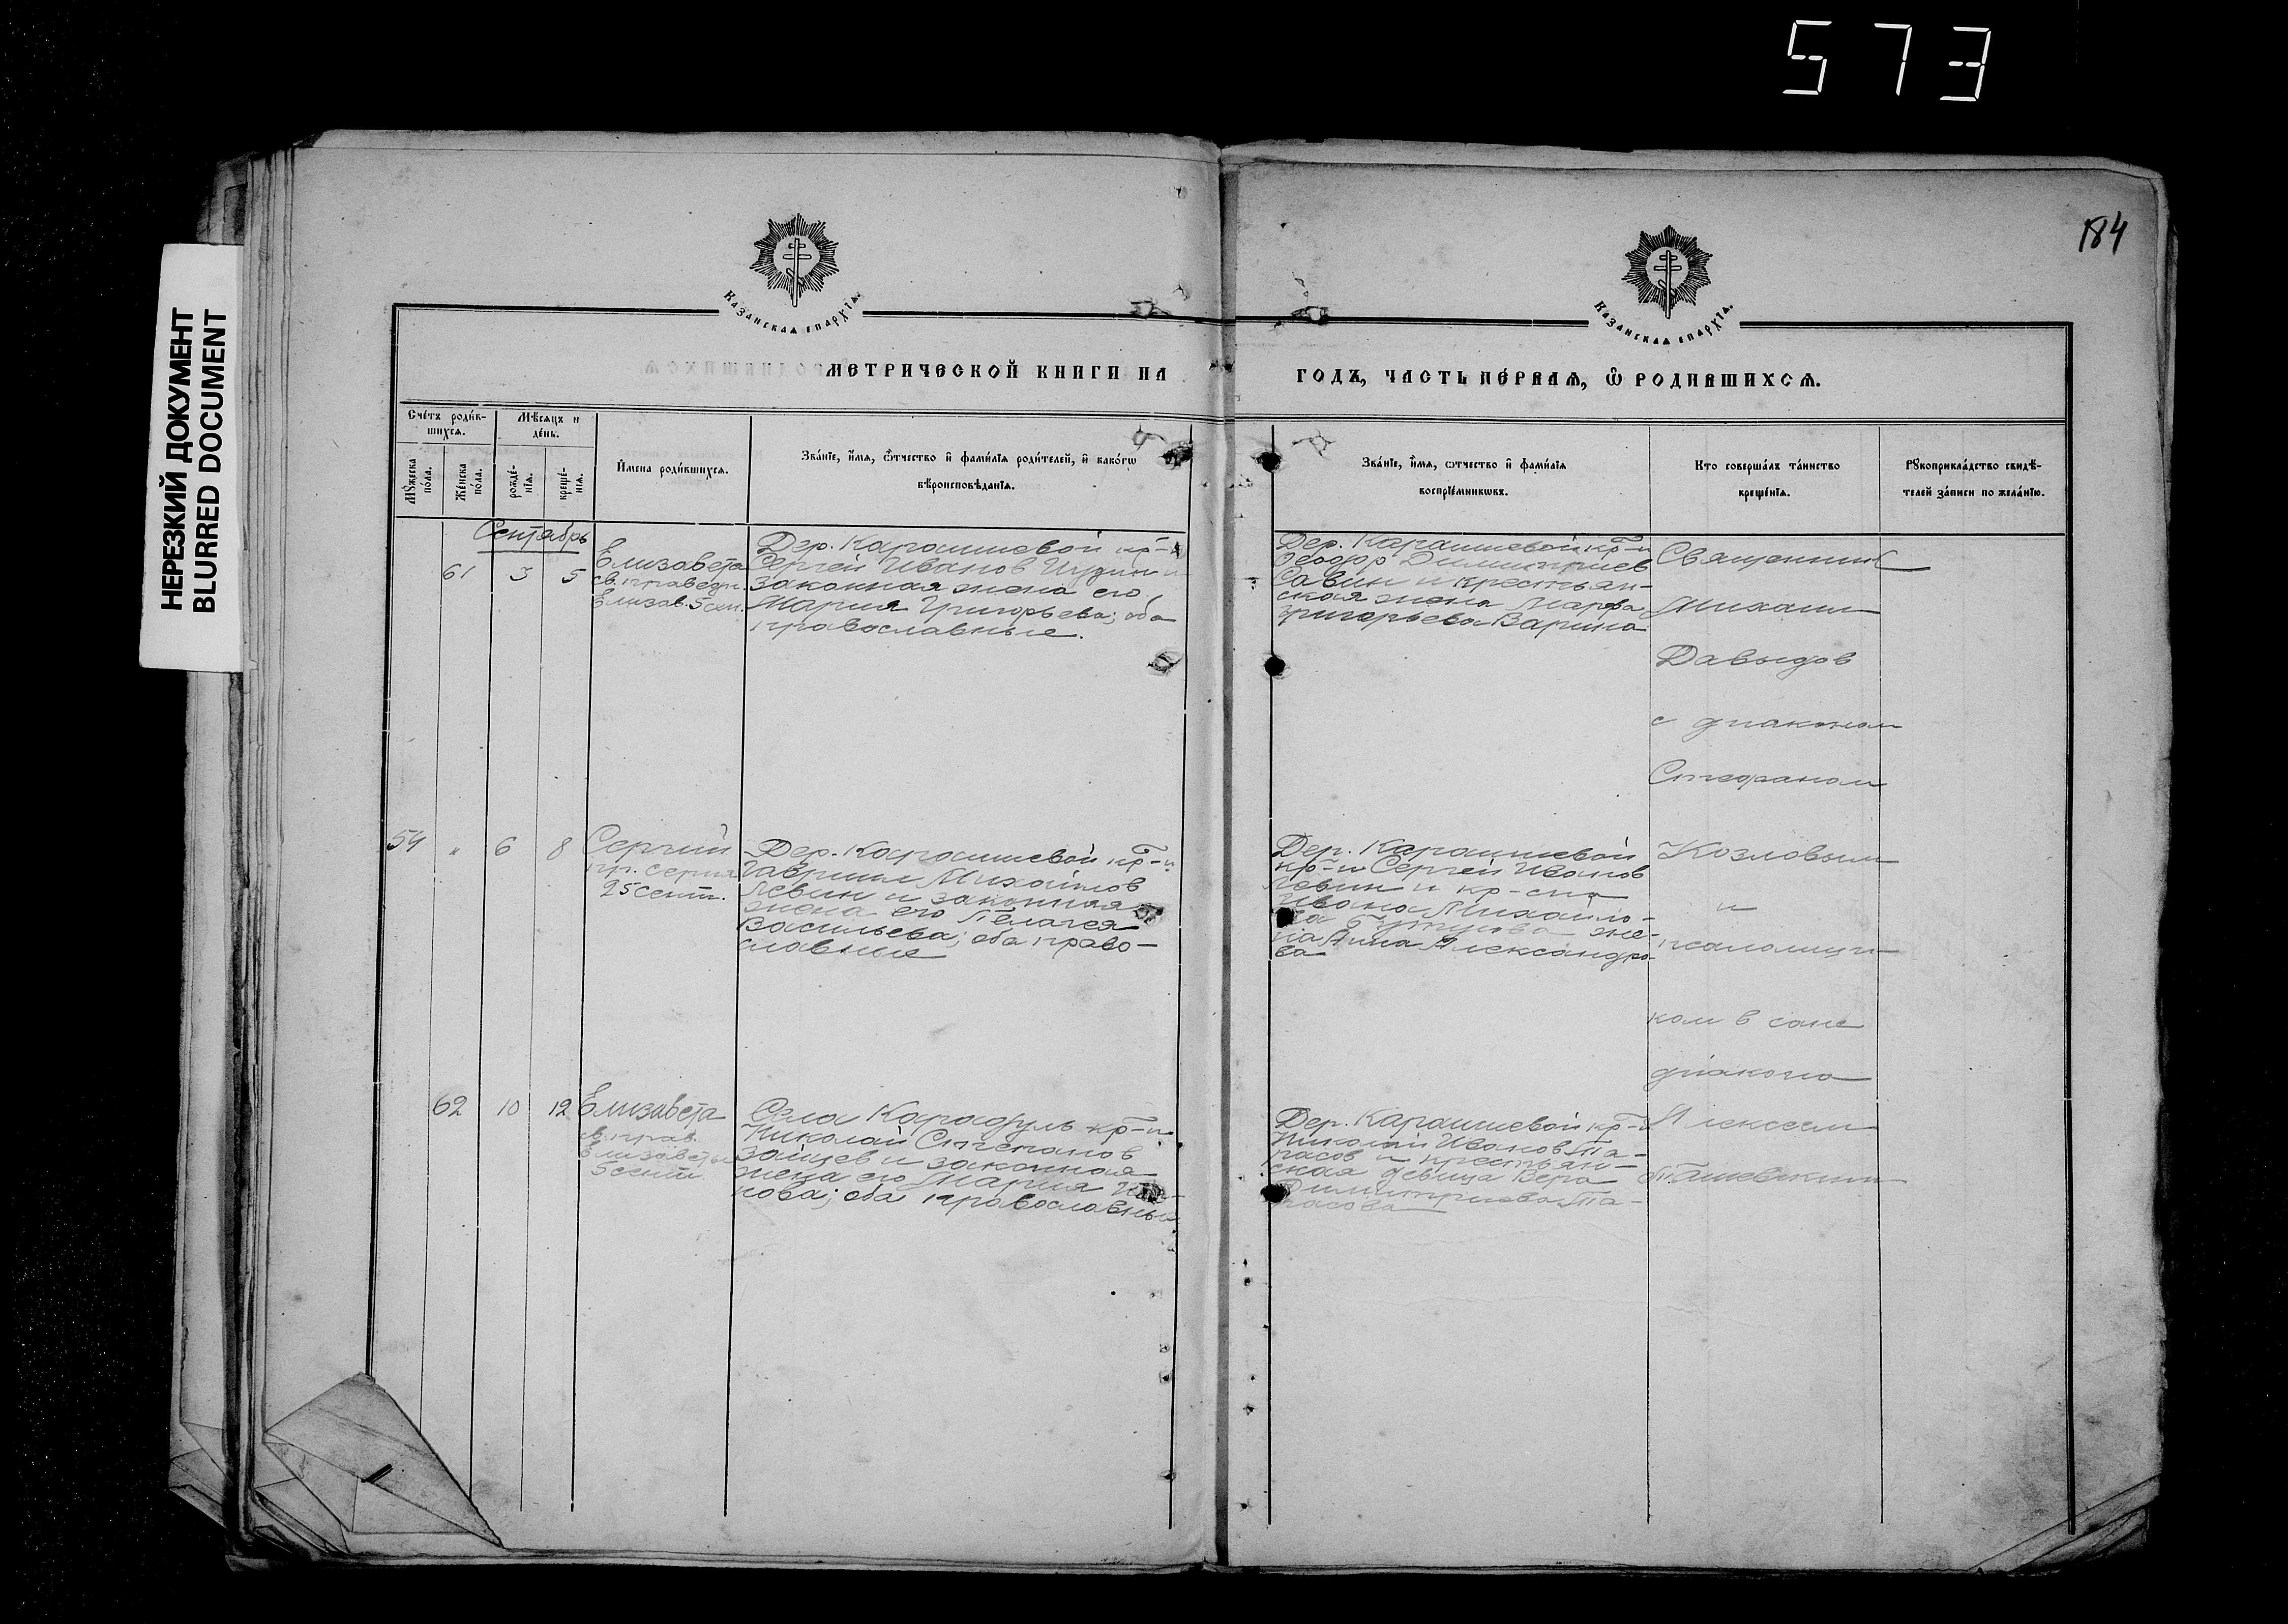 573
184
НЕРЕЗКИЙ ДОКУМЕНТ
BLURRED DOCUMENT
Казанская епархїя.
Казанская епархїя.
МЕТРИЧЕСКОЙ КНИГИ НА
ГОДЪ, ЧАСТЬ ПЕ́РВАЯ, Ѿ РОДИВШИХСЯ.
Сче́тъ роди́в-
шихся.
Мѣ́сяцъ и
де́нь.
Мꙋ́жеска
по́ла.
Же́нска
по́ла.
рожде́-
нїя.
креще́-
нїя.
И҆мена роди́вшихся.
Зва́нїе, и҆́мя, ѻ҆́тчество и҆ фами́лїя роди́телей, и҆ како́гѡ
вѣроисповѣ́данїя.
Зва́нїе, и҆́мя, ѻтчество и҆ фами́лїя
воспрїе́мникѡвъ.
Кто соверша́лъ та́инство
креще́нїя.
Рꙋкоприкла́дство свидѣ́-
телей за́писи по жела́нїю.
Сентябрь
61 3 5
Елизавета
св. праведн.
Елизав. 5 сен.
Дер. Караишевой кр-н
Сергей Иванов и
законная жена его,
Мария Григорьева; оба
православные.
Дер. Караишевой кр-н
Феодор Димитриев
Савин и крестьян-
ская жена Марфа
Григорьева Варина
Священник
Михаил
Давыдов
с диаконом
Стефаном
54 " 6 8
Сергий
пр. Сергия
25 сент.
Дер. Караишевой кр-н
Гавриил Михайлов
Левин и законная
жена его Пелагея
Васильева; оба право-
славные
Дер. Караишевой
кр-н Сергей Иванов
Левин и кр-на
Ивана Михайло-
ва же-
на Анна Александро-
ва
Козловым
и
псаломщи-
ком в сане
диакона
62 10 12
Елизавета
св. прав.
Елизаветы
5 сент.
Села Карадуль кр-н
Николай Степанов
Зайцев и законная
жена его Мария
нова; оба православные
Дер. Караишевой кр-н
Николай Иванов Та-
расов и крестьян-
ская девица Вера
Димитриева Та-
расова
Алексеем